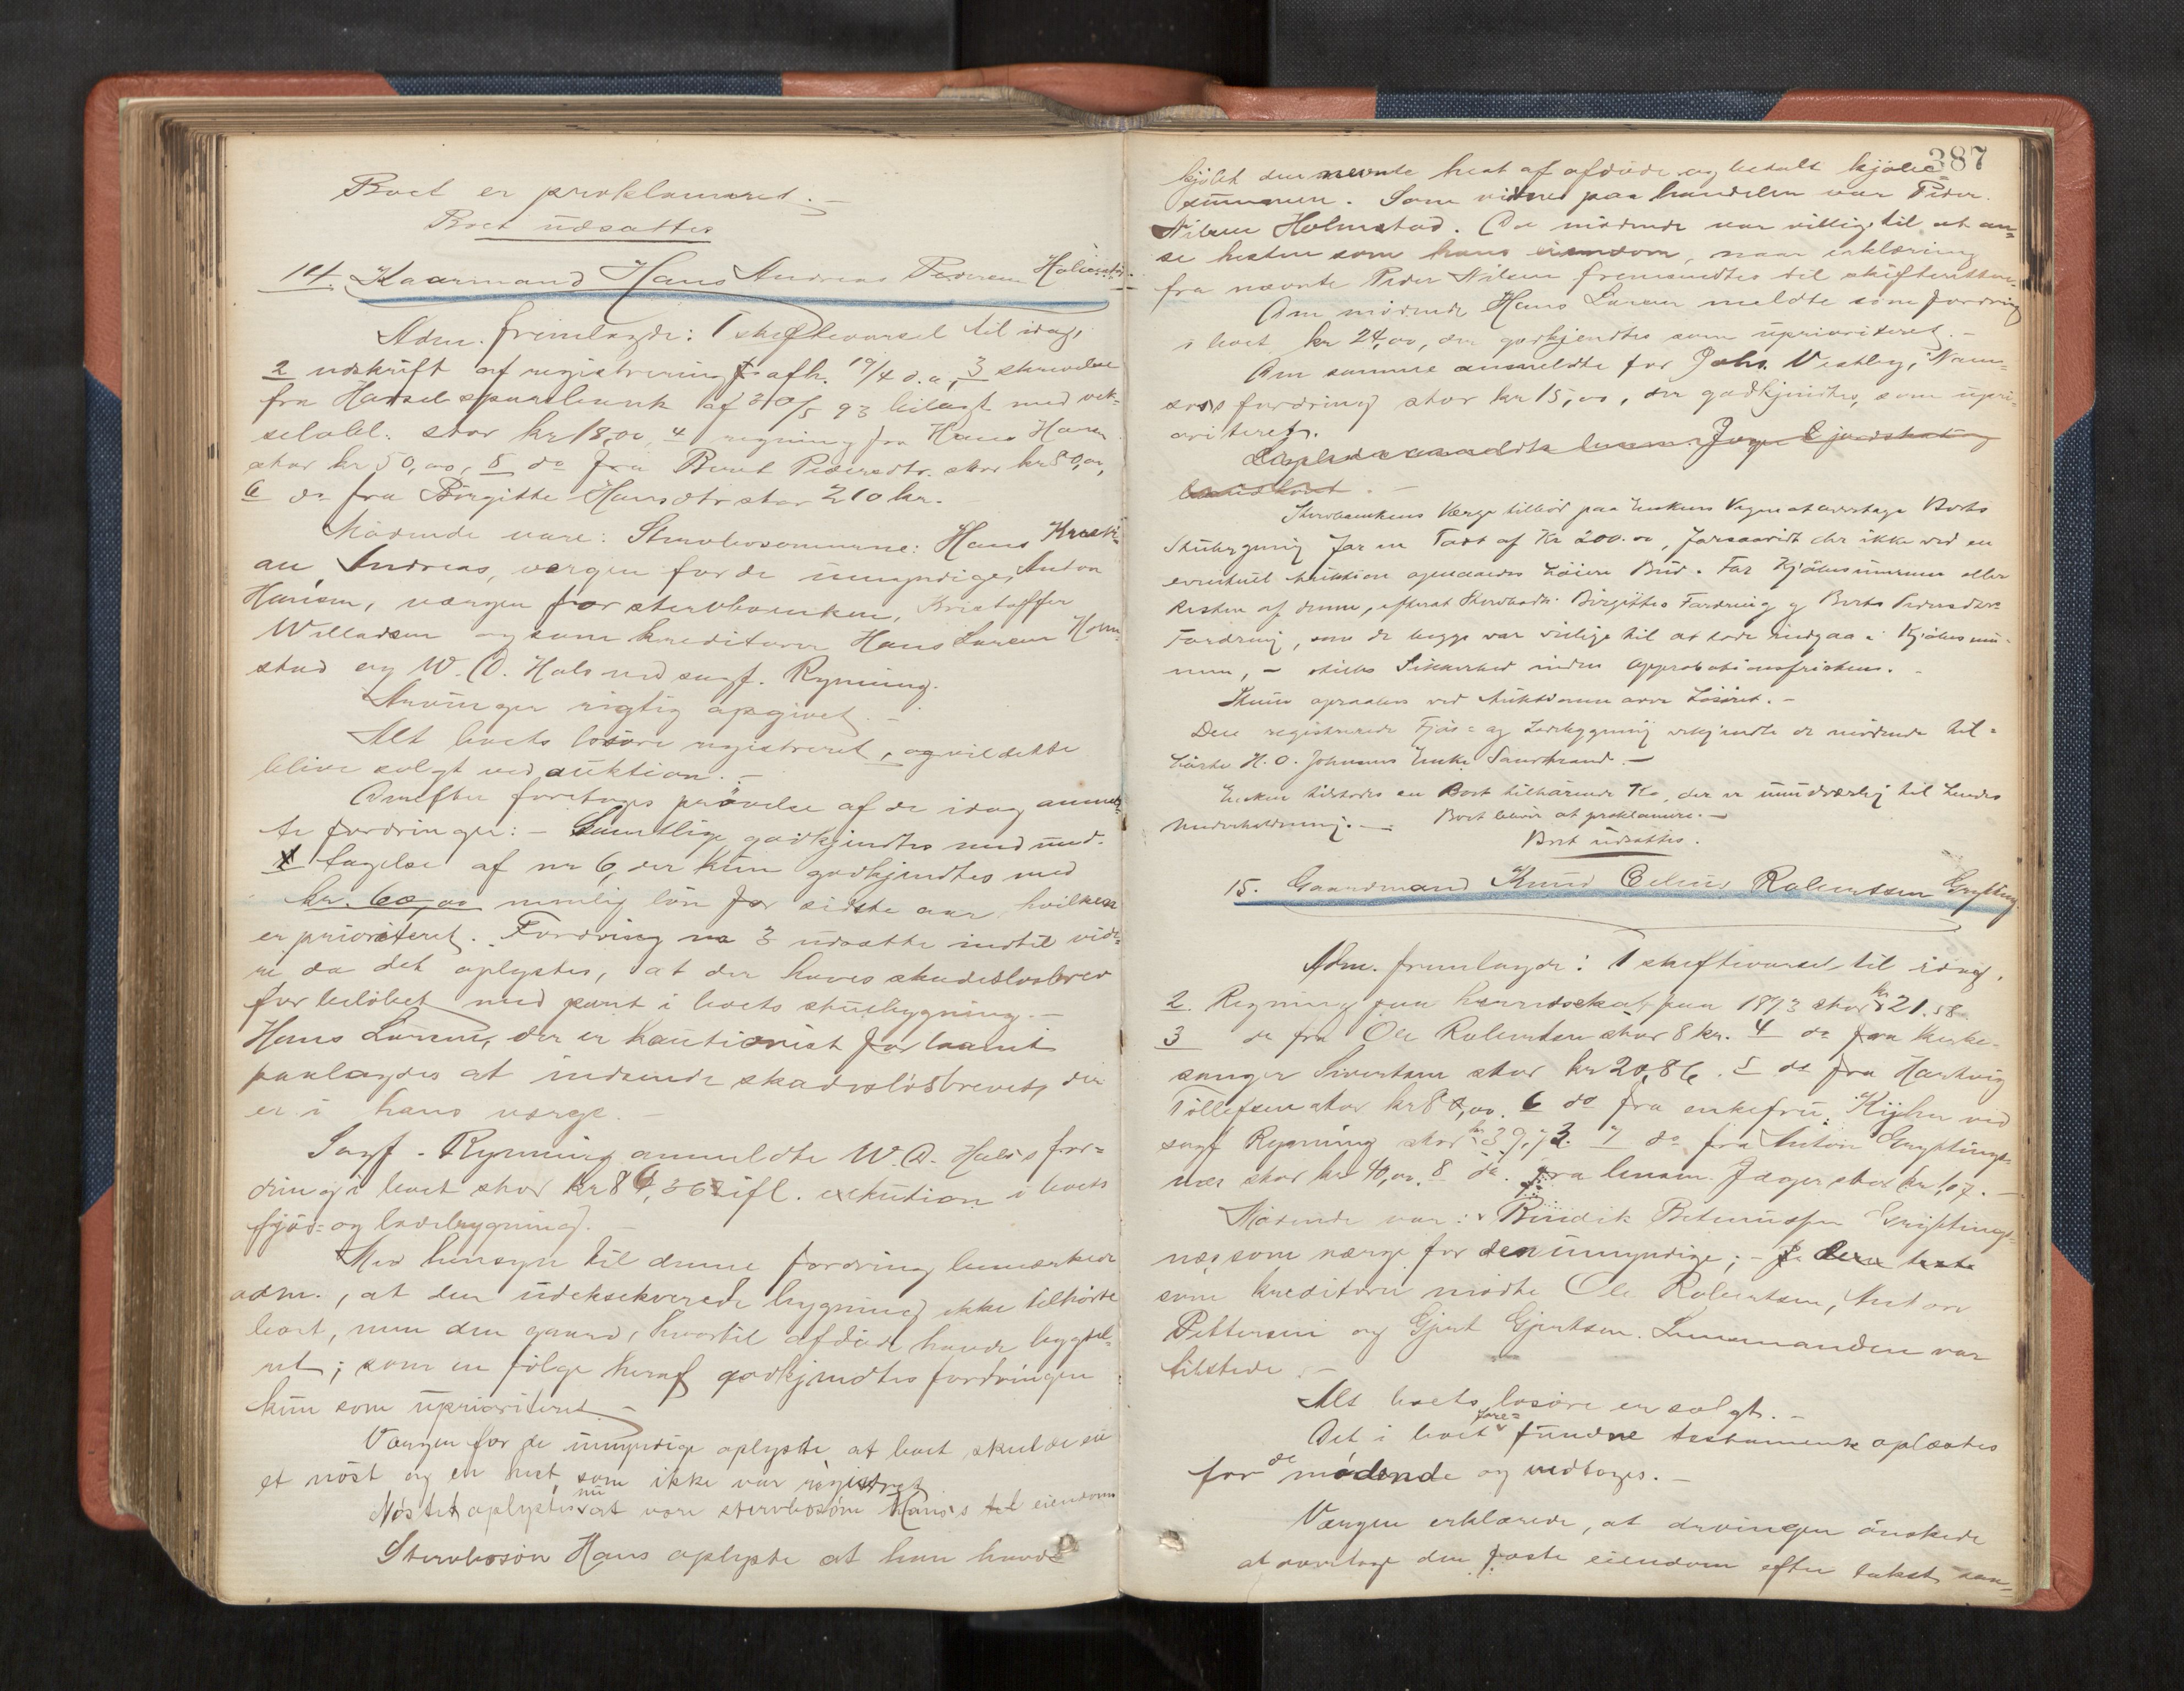 Boet er proklameret. –
Boet udsattes
14. Kaarmand Hans Andreas Pedersen
Adm. fremlagde: 1 skiftevarsel til idag,
2 udskrift af registrering afh. 19/4 d.a, 3 skrivelse
fra Hadsel sparebank af 30/5 93 bilagt med vek-
selobl. stor kr 18,00, 4 regning fra Hans Hansen
stor kr 50,00, 5 do fra Berit Pedersdtr. stor kr 80,00,
6 do fra Birgitte Hansdtr stor 210 kr.
Mødende vare: Stervbosønnerne: Hans Kristi-
an Andreas, vergen for de umyndige, Anton
Hansen, værgen for stervboenken, Kristoffer
Willadsen og som kreditorer Hans Larsen Holm-
stad og W. D. Hals ved sagf. Rynning.
Arvinger rigtig opgivet. –
Alt boets løsøre registreret, og vil dette
blive solgt ved auktion. –
Derefter foretoges prøvelse af de idag anmeld-
te fordringer: – Samtlige godkjendtes med und-
tagelse af nr 6, der kun godkjendtes med
kr. 60,00 nemlig løn for sidste aar, hvilken
er prioriteret. Fordring no 3 udsatte indtil vide-
re da det oplystes, at der haves skadesløsbrev
for beløbet med pant i boets stuebygning. –
Hans Larsen, der er kautionist for laanet
paalagdes at indsende skadesløsbrevet, der
er i hans værge. –
Sagf. Rynning anmeldte W. D. Hals's for-
dring i boet stor kr 86,36 ifl. exekution i boets
fjøs- og ladebygning. –
Med hensyn til denne fordring bemærkede
adm., at den udeksekverede bygning ikke tilhørte
boet, men den gaard, hvortil afdøde havde bygsel-
ret; som en følge heraf godkjendtes fordringen
kun som uprioriteret. –
Værgen for de umyndige oplyste, at boet skulde eie
et nøst og en hest, som ikke var registreret
Nøstet oplystes nu at være stervbosøn Hans's eiendom
Stervbosøn Hans oplyste at han havde
387
kjøbt den nævnte hest af afdøde og betalt kjøbe-
summen. Som vidne paa handelen var Peder
Nilsen Holmstad. De mødende var villige til at an-
se hesten som hans eiendom, naar erklæring
fra nævnte Peder Nilsen fremsendtes til skifteretten.
Den mødende Hans Larsen meldte som fordring
i boet kr 24,00, der godkjendtes som uprioriteret. –
Den samme anmeldte for Johs. Vestby,
fordring stor kr 15,00, der godkjendtes, som upri-
oriteret.
Stervboenkens Værge tilbød paa Enkens Vegne at overtage Boets
Stuebygning for en Taxt af Kr 200.00, forsaavidt der ikke ved en
eventuel Auktion opnaaedes høiere Bud. For Kjøbesummen eller
Resten af denne, efterat Stervbodtr. Birgittes Fordring og Berits Pedersdtrs
Fordring, som de begge var villige til at lade indgaa i Kjøbesum-
men, – stilles Sikkerhed inden Approbationsfristen. –
Stuen opraabes ved Auktionen over Løsøret. –
Den registrerede Fjøs- og Ladebygning erkjendte de mødende til-
hørte H. O. Johnsens Enke, Sandstrand –
Enken tilstodes en Boet tilhørende Ko, der er uundværlig til hendes
Underholdning. – Boet bliver at proklamere. –
Boet udsattes.
15. Gaardmand Knud Robertsen
Adm. fremlagde: 1 skiftevarsel til idag,
2 Regning paa herredsskat paa 1893 stor kr 21.58
3 do fra Ole Robertsen stor 8 kr. 4 do fra kirke-
sanger Sivertsen stor kr 20,86. 5 do fra Hartvig
Tollefsen stor kr 80,00. 6 do fra enkefru ved
sagf Rynning stor kr 39,73. 7 do fra Anton Gryttings-
næs stor kr 40,00. 8 do. fra lensm. Jæger stor kr 1,07. –
Mødende var: Gryttings-
næs som værge for den umyndige; –
som kreditorer mødte Ole Robertsen, Anton
Pettersen og Gjert Gjertsen. Lensmanden var
tilstede. –
Alt boets løsøre er solgt. –
Det i boet fore- fundne testamente oplæstes
for de mødende og vedtoges. –
Værgen erklærede, at arvingen ønskede
at overtage den faste eiendom efter takst, san-